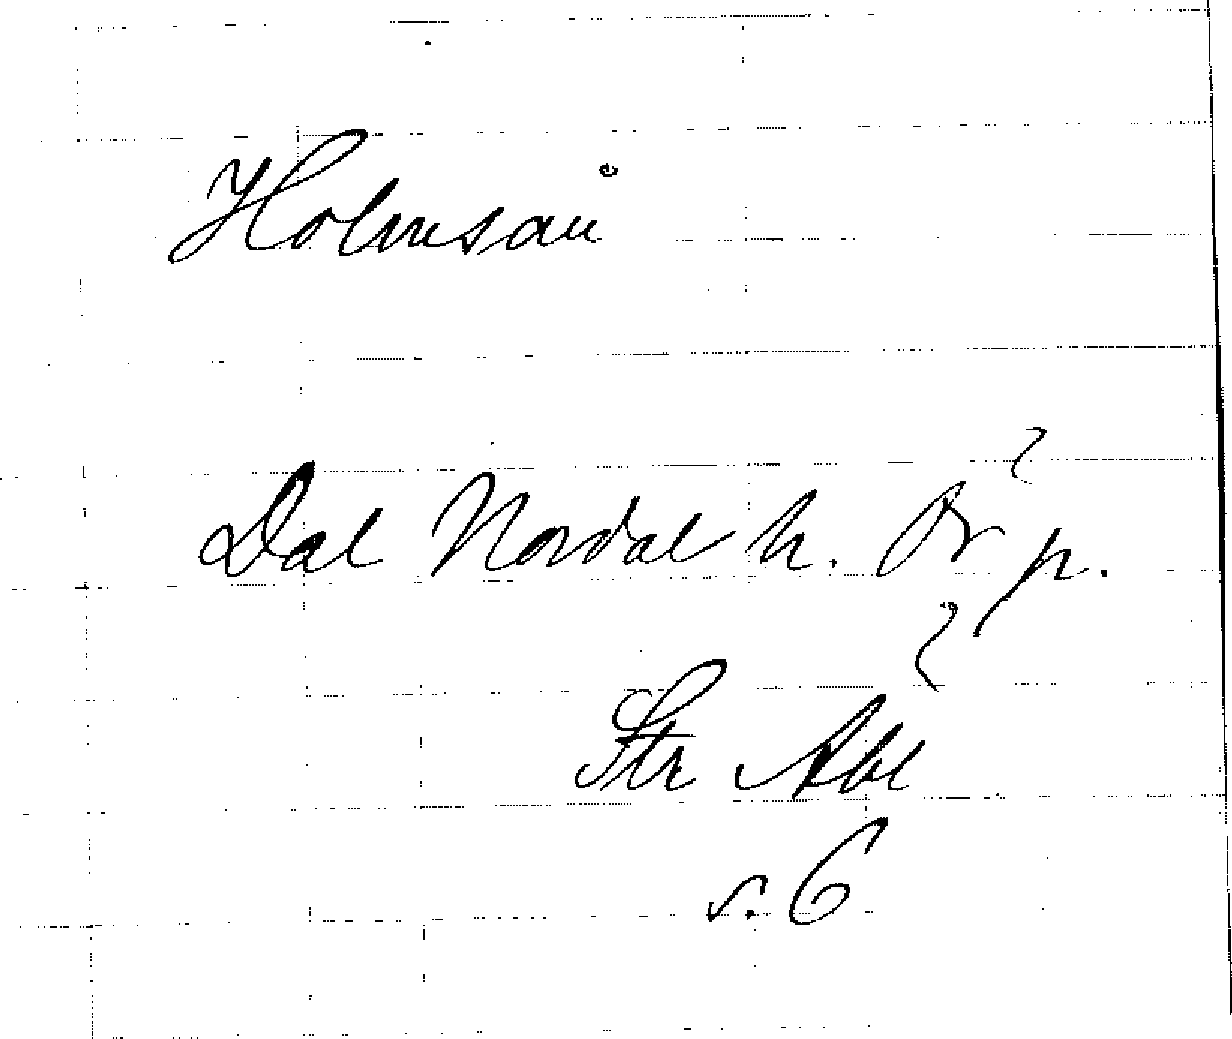 Holmsån
Dal Nordal h. Ör p.
Str Abl
s. 6